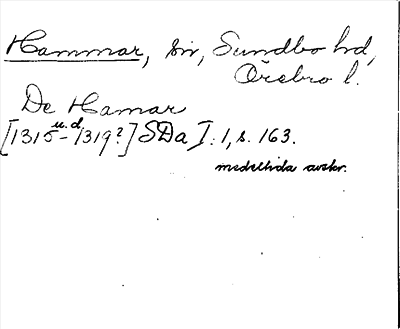 Hammar, sn, Sundbo hd,
Örebro l.
De Hamar
[1315 u.d. - 1319?] SDa I: 1, s. 163.
medeltida avskr.